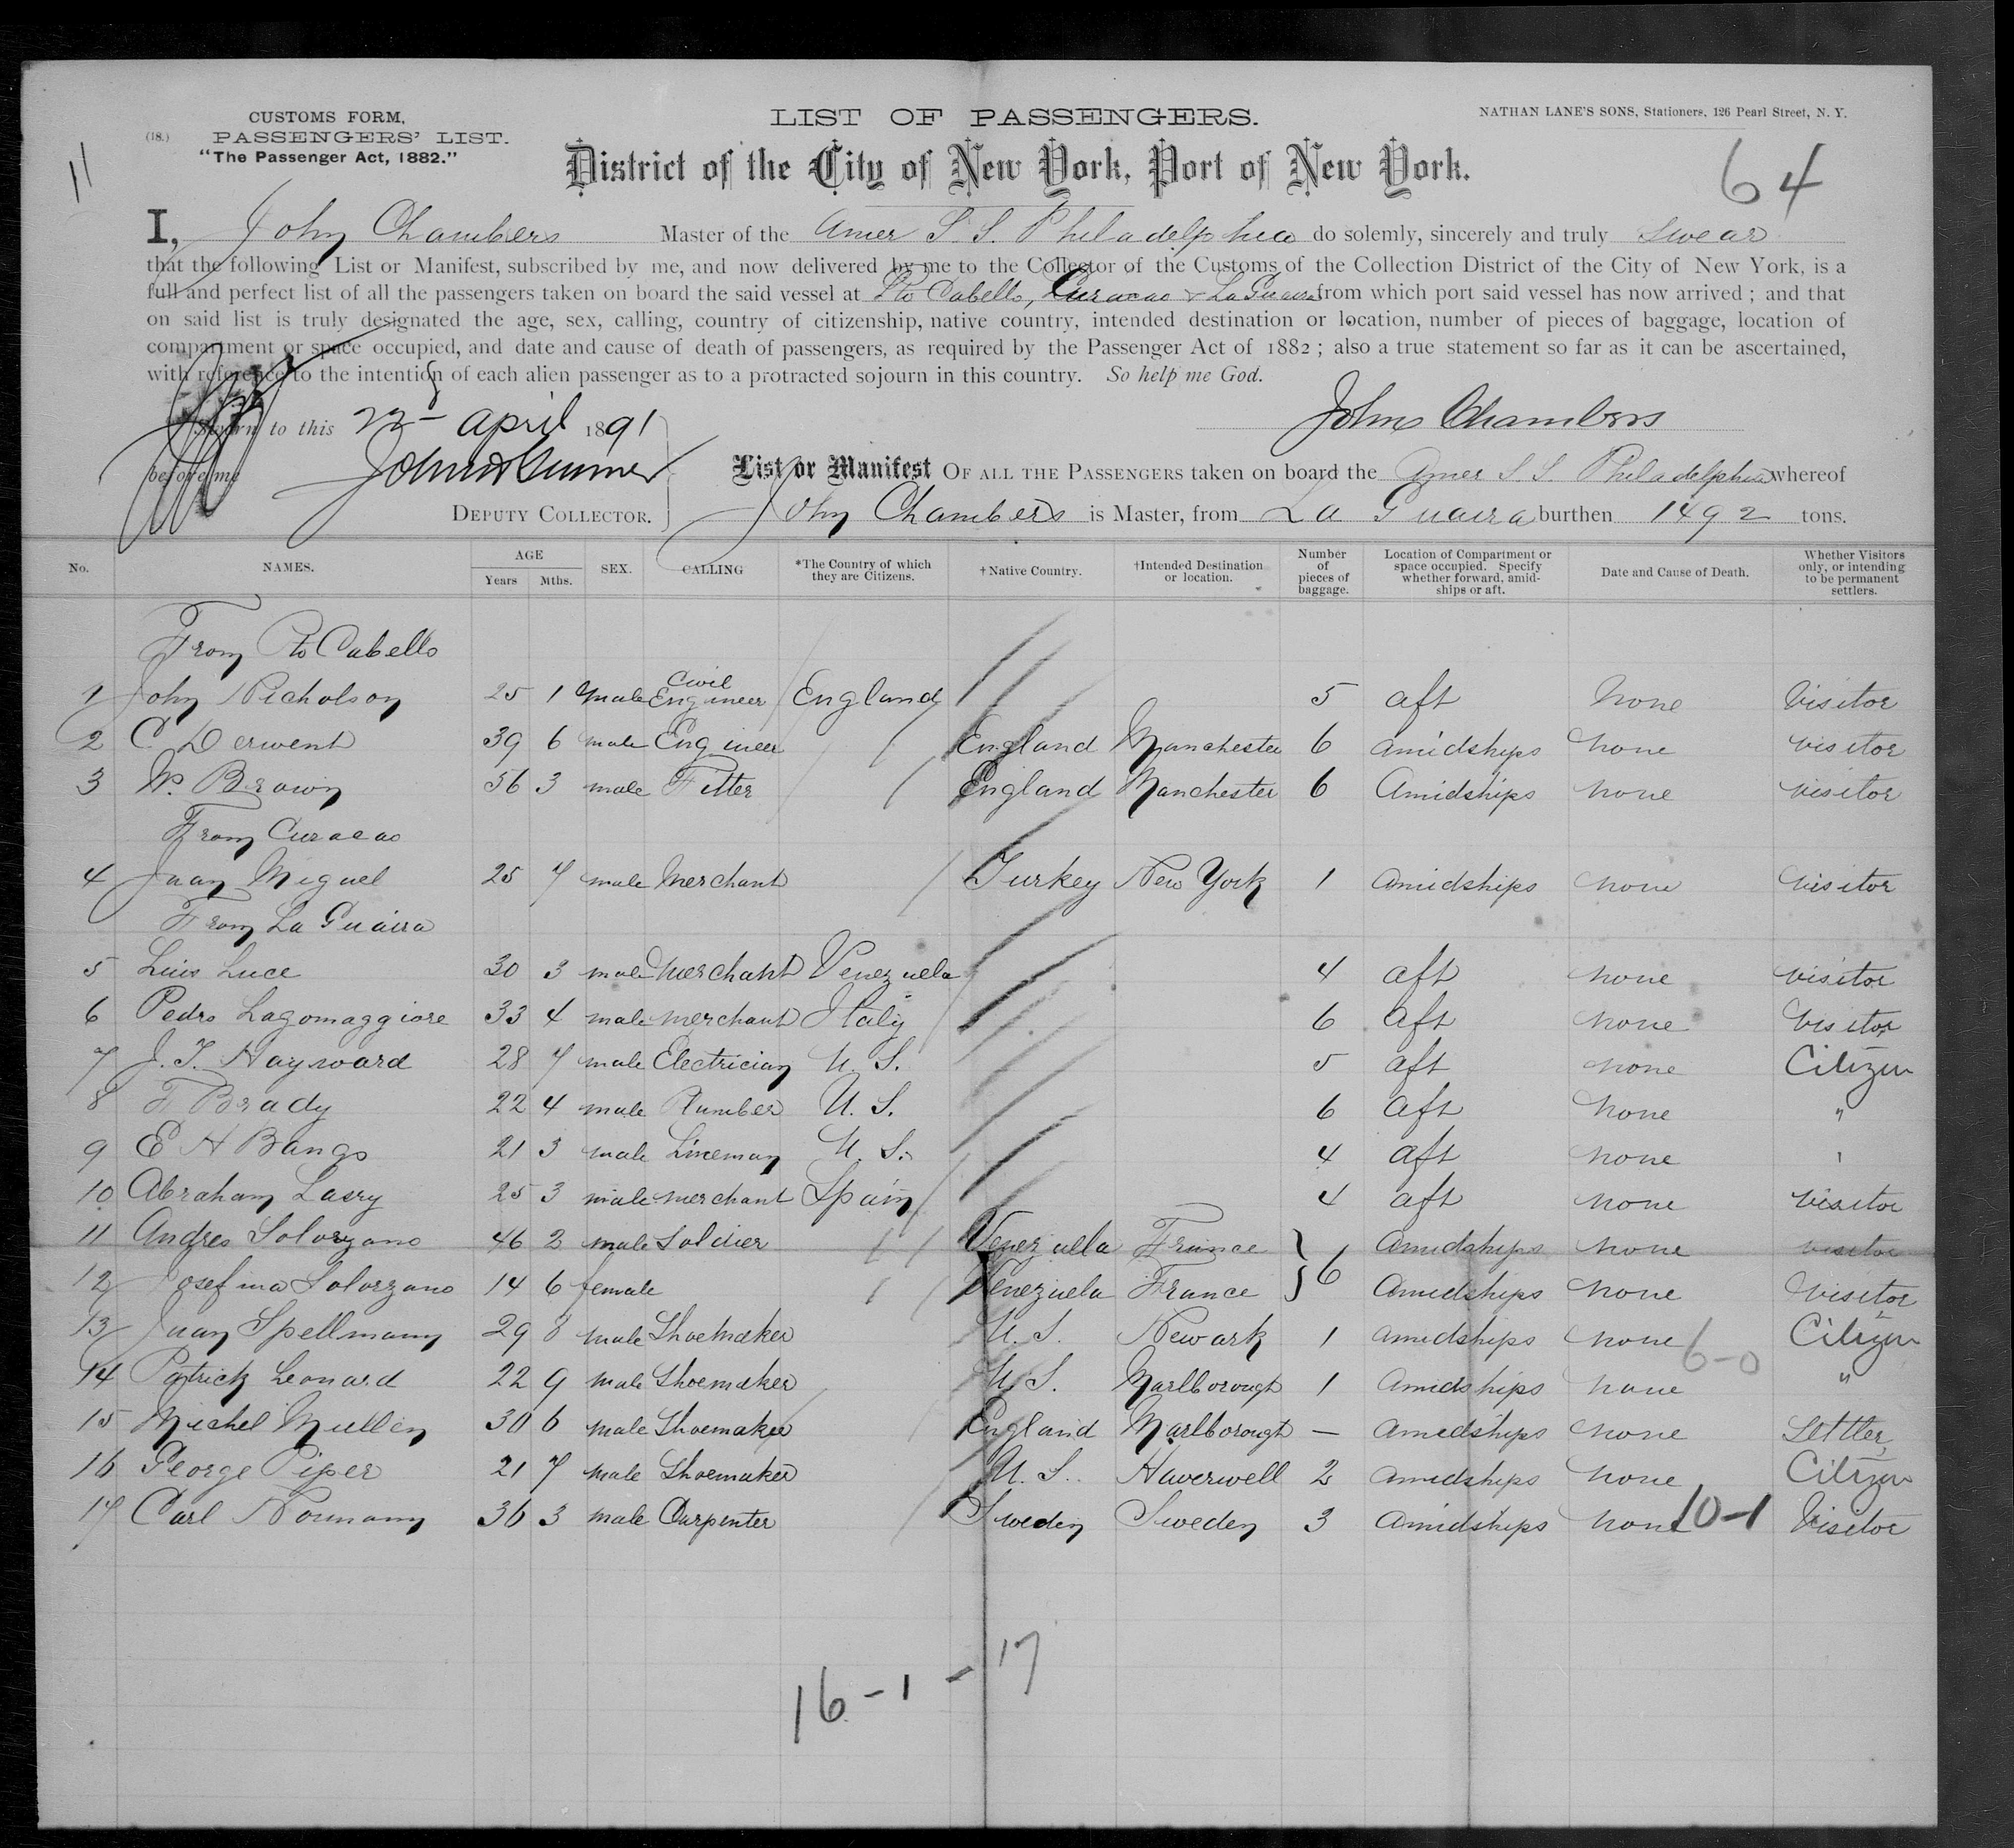 CUSTOMS FORM,
(18.) PASSENGERS' LIST.
"The Passenger Act, 1882."
11
LIST OF PASSENGERS.
NATHAN LANE'S SONS, Stationers, 126 Pearl Street, N. Y.
District of the City of New York, Port of New York.
64
I, John Chambers Master of the Amer S. S. Philadelphia do solemly, sincerely and truly swear
that the following List or Manifest, subscribed by me, and now delivered by me to the Collector of the Customs of the Collection District of the City of New York, is a
full and perfect list of all the passengers taken on board the said vessel at Pto Cabello, Curacao & La Guaira from which port said vessel has now arrived; and that
on said list is truly designated the age, sex, calling, country of citizenship, native country, intended destination or location, number of pieces of baggage, location of
compartment or space occupied, and date and cause of death of passengers, as required by the Passenger Act of 1882; also a true statement so far as it can be ascertained,
with reference to the intention of each alien passenger as to a protracted sojourn in this country. So help me God.
Sworn to this 22 April 1891
John Chambers
before me
DEPUTY COLLECTOR.
List or Manifest OF ALL THE PASSENGERS taken on board the Amer S. S. Philadelphia whereof
John Chambers is Master, from La Guaira burthen 1492 tons.
No. NAMES. AGE Years Mths. SEX. CALLING *The Country of which they are Citizens. †Native Country. †Intended Destination or location. Number of pieces of baggage. Location of Compartment or space occupied. Specify whether forward, amidships or aft. Date and Cause of Death. Whether Visitors only, or intending to be permanent settlers.
From Pto Cabello
1 John Nicholson 25 1 male Civil Engineer England 5 aft none Visitor
2 C. Derwent 39 6 male Engineer England Manchester 6 amidships none visitor
3 W. Brown 36 3 male Fitter England Manchester 6 Amidships none visitor
From Curacao
4 Juan Miguel 25 7 male Merchant Turkey New York 1 amidships none visitor
From La Guaira
5 Luis Luce 30 3 male merchant Venezuela 4 aft none visitor
6 Pedro Lagomaggiore 33 4 male merchant Italy 6 aft none Visitor
7 J. T. Hayward 28 7 male Electrician U. S. 5 aft none Citizen
8 F Brady 22 4 male Plumber U. S. 6 aft none "
9 E H Bangs 21 3 male Lineman U. S. 4 aft none '
10 Abraham Lasry 25 3 male merchant Spain 4 aft none visitor
11 Andres Solorzano 46 2 male Soldier Venezuela France } 6 Amidships none visitor
12 Josefina Solorzano 14 6 female Venezuela France } Amidships none Visitor
13 Juan Spellmann 29 8 male Shoemaker U. S. Newark 1 amidships none Citizen
6-0
14 Patrick Leonard 22 9 male Shoemaker U. S. Marlborough 1 Amidships none "
15 Michel Mullen 30 6 male Shoemaker England Marlborough — amidships none Settler
16 George Piper 21 7 male Shoemaker U. S. Haverwell 2 amidships none Citizen
17 Carl Normann 36 3 male Carpenter Sweden Sweden 3 amidships none 10-1 Visitor
16 - 1 - 17